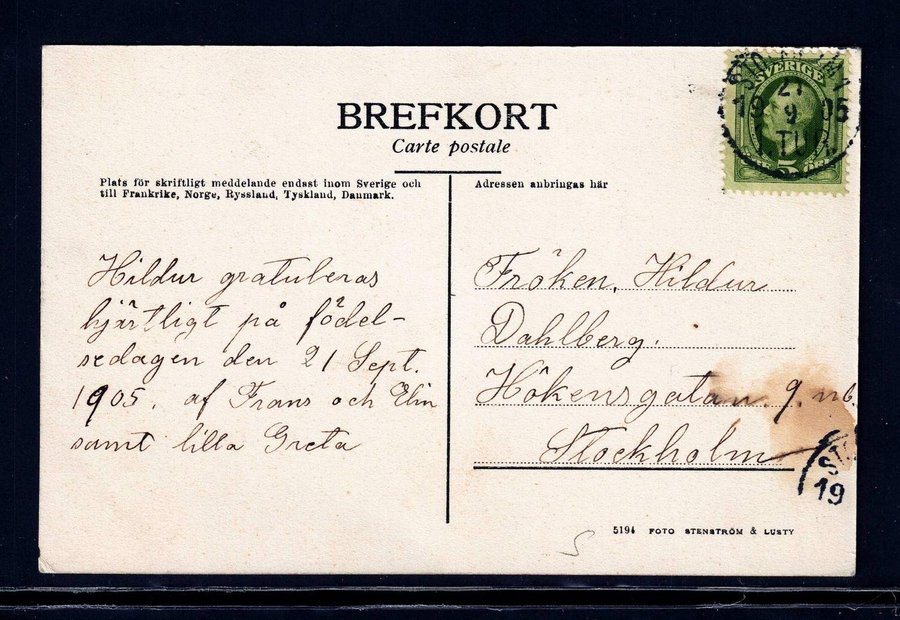 BREFKORT
Carte postale
Plats för skriftligt meddelande endast inom Sverige och
till Frankrike, Norge, Ryssland, Tyskland, Danmark.
Hildur gratuleras
hjärtligt på födel-
sedagen den 21 Sept.
1905. af Frans och Elin
samt lilla Greta
SVERIGE
21
9
19 05
Adressen anbringas här
Fröken, Hildur
Dahlberg.
Hökensgatan 9. nb.
Stockholm
ST
19
5194 FOTO STENSTRÖM & LUSTY